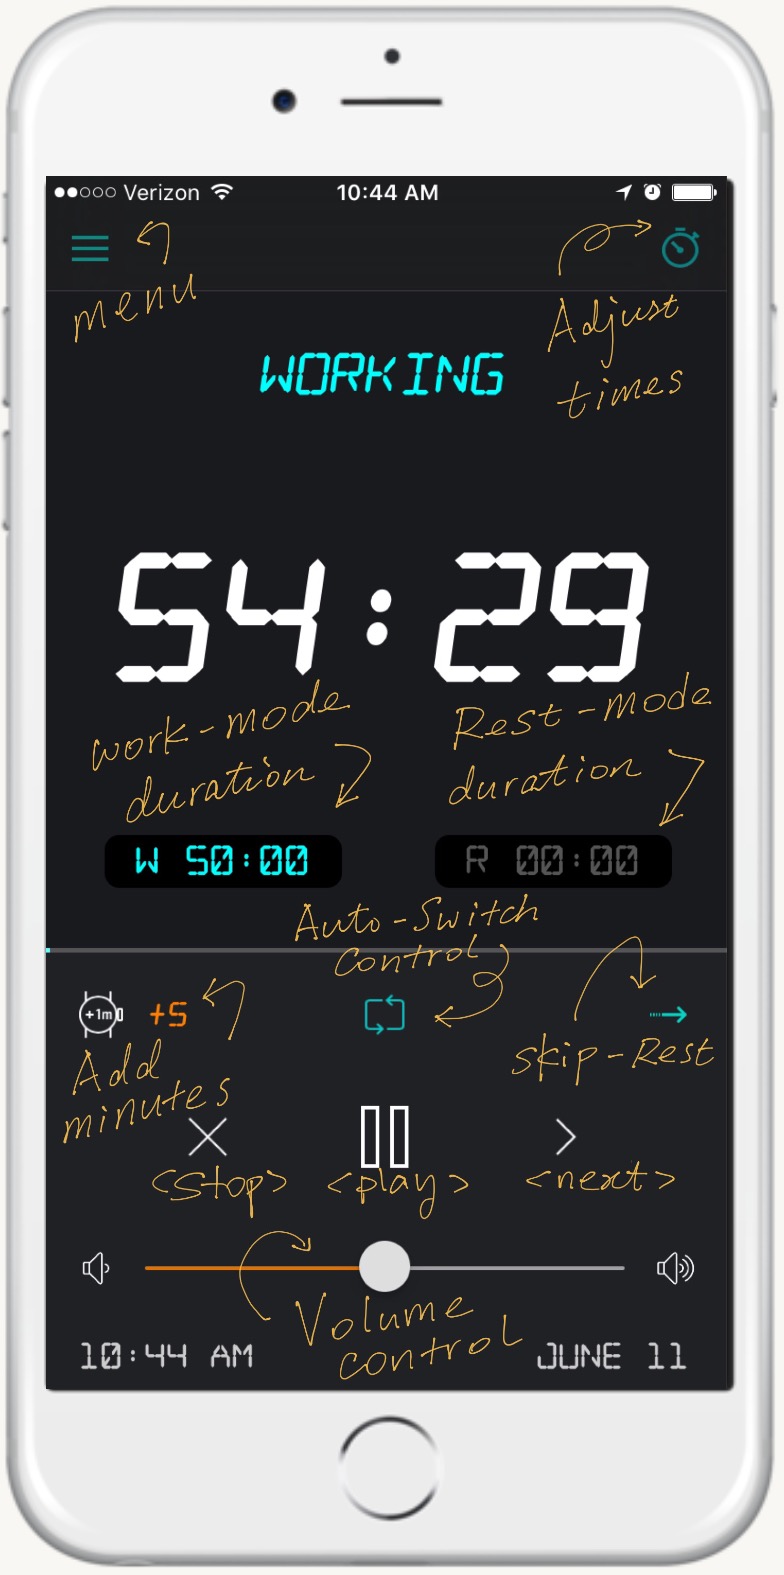 Verizon 10:44 AM
menu
Adjust
times
WORKING
54:29
work-mode
duration
Rest-mode
duration
W 50:00 R 00:00
Auto-Switch
control
+1m +5
Add
minutes
skip-Rest
<Stop> <play> <next>
Volume
control
10:44 AM JUNE 11